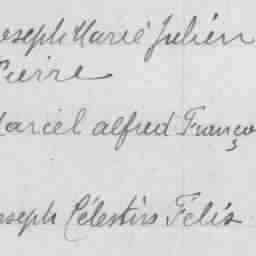 Joseph Marie Julien
Pierre
Marcel alfred Franço
Joseph Célestin Félix